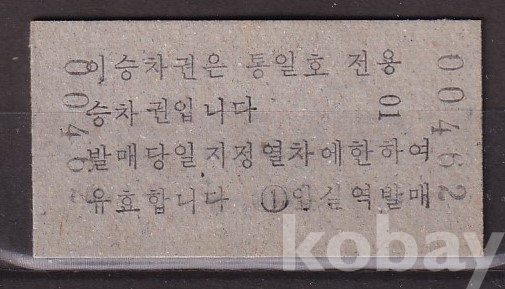 이 승차권은 통일호 전용
승차권입니다 01
발매당일 지정열차에한하여
유효합니다 ①임실역발매
00462
00462
kobay